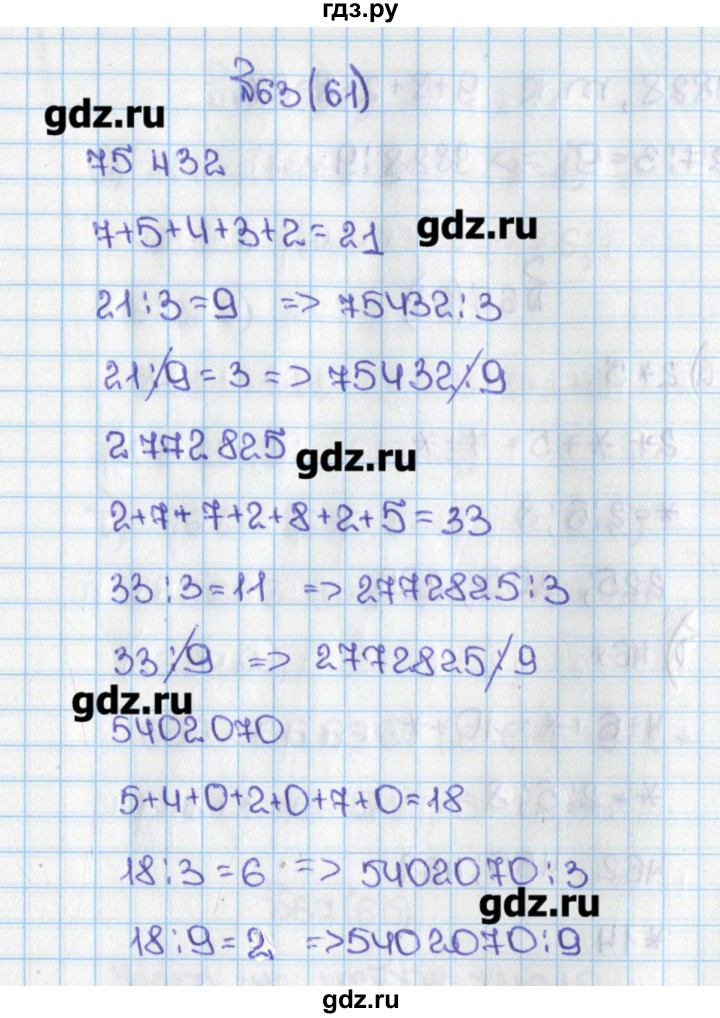 гдз.ру
№63(61)
gdz.ru
75 432
7+5+4+3+2=21
gdz.ru
21:3=9 => 75432:3
21⋮̸9=3 => 75432⋮̸9
2772825
gdz.ru
2+7+7+2+8+2+5=33
33:3=11 => 2772825:3
33⋮̸9 => 2772825⋮̸9
gdz.ru
5402070
5+4+0+2+0+7+0=18
18:3=6 => 5402070:3
gdz.ru
18:9=2 =>5402070:9
gdz.ru